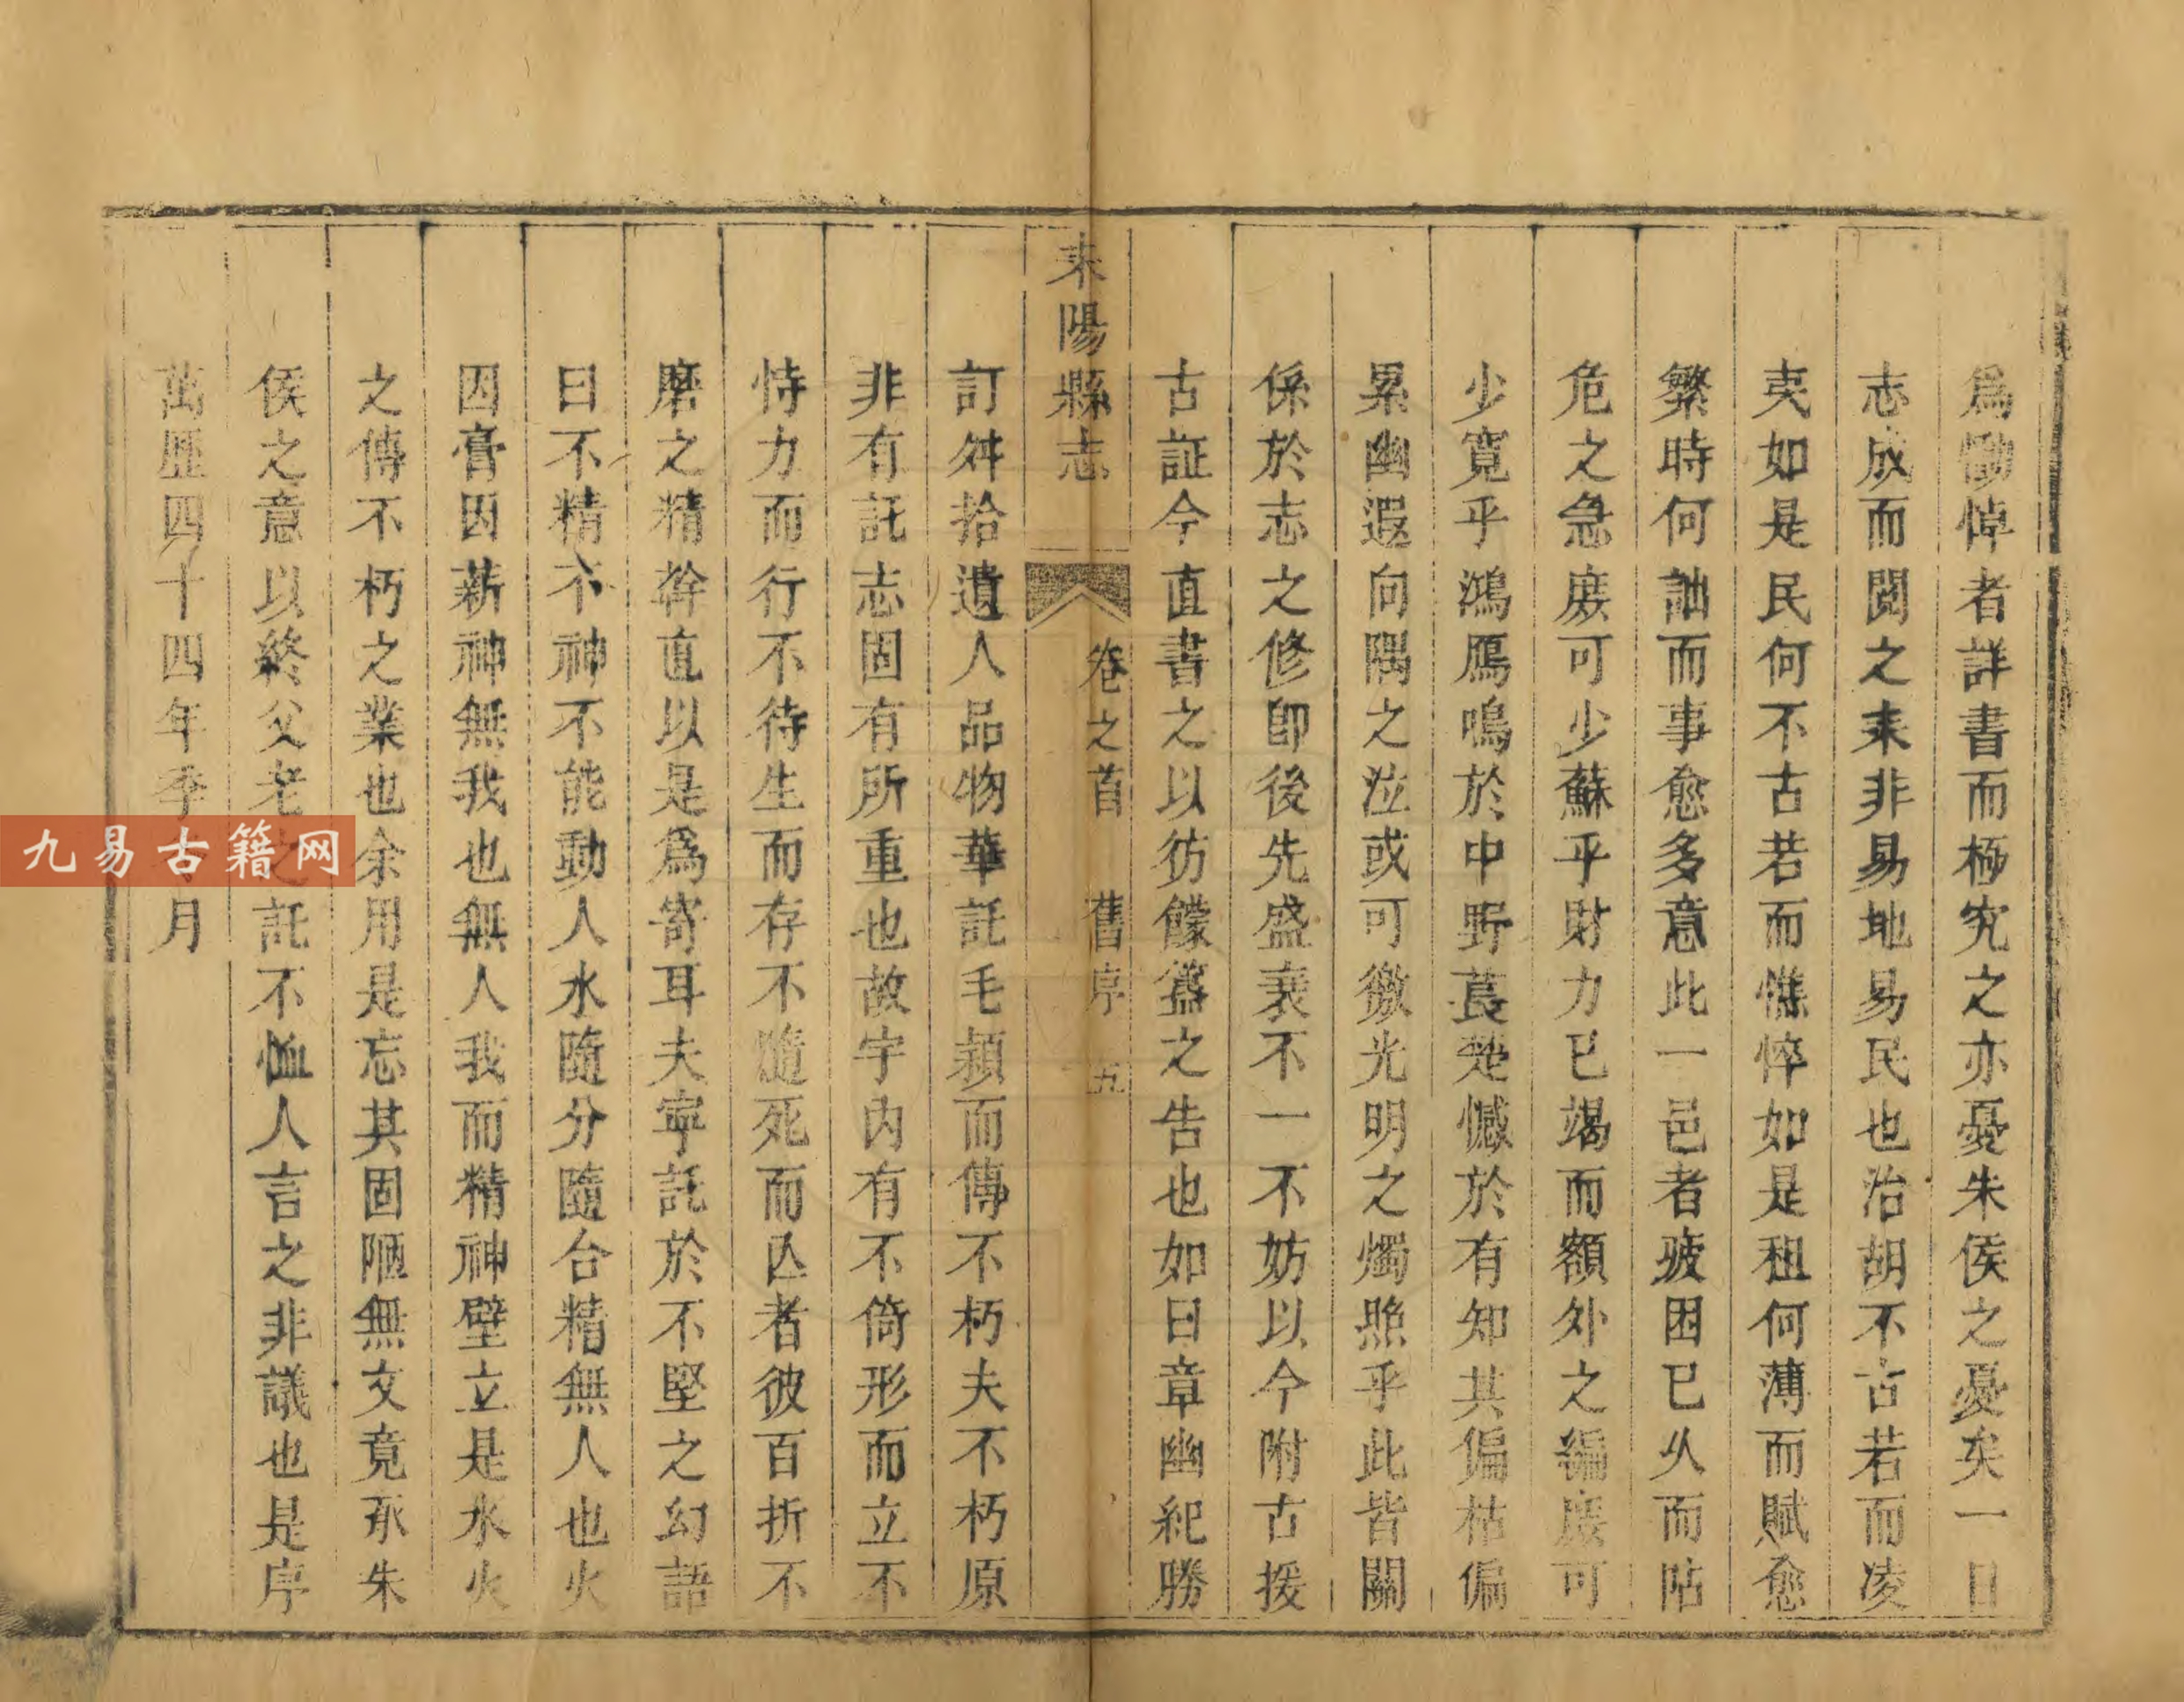 爲慟悼者詳書而極究之亦憂朱侯之憂矣一日
志成而閱之耒非易地易民也治胡不古若而凌
夷如是民何不古若而憔悴如是租何薄而賦愈
繁時何詘而事愈多意此一邑者疲困已久而阽
危之急庻可少蘇乎財力已竭而額外之編庻可
少寛乎鴻鴈鳴於中野萇楚憾於有知其偏枯偏
累幽遐向隅之泣或可徼光明之燭照乎此皆關
係於志之修卽後先盛衰不一不妨以今附古援
古証今直書之以彷饛簋之告也如曰章幽紀勝
耒陽縣志
卷之首 舊序 五
訂舛拾遺人品物華託毛穎而傳不朽夫不朽原
非有託志固有所重也故宇内有不倚形而立不
恃力而行不待生而存不隨死而亾者彼百折不
磨之精幹直以是爲寄耳夫寧託於不堅之幻語
曰不精不神不能動人水隨分隨合精無人也火
因膏因薪神無我也無人我而精神壁立是水火
之傳不朽之業也余用是忘其固陋無文竟承朱
侯之意以終父老之託不恤人言之非議也是序
萬歷四十四年季月
九易古籍网